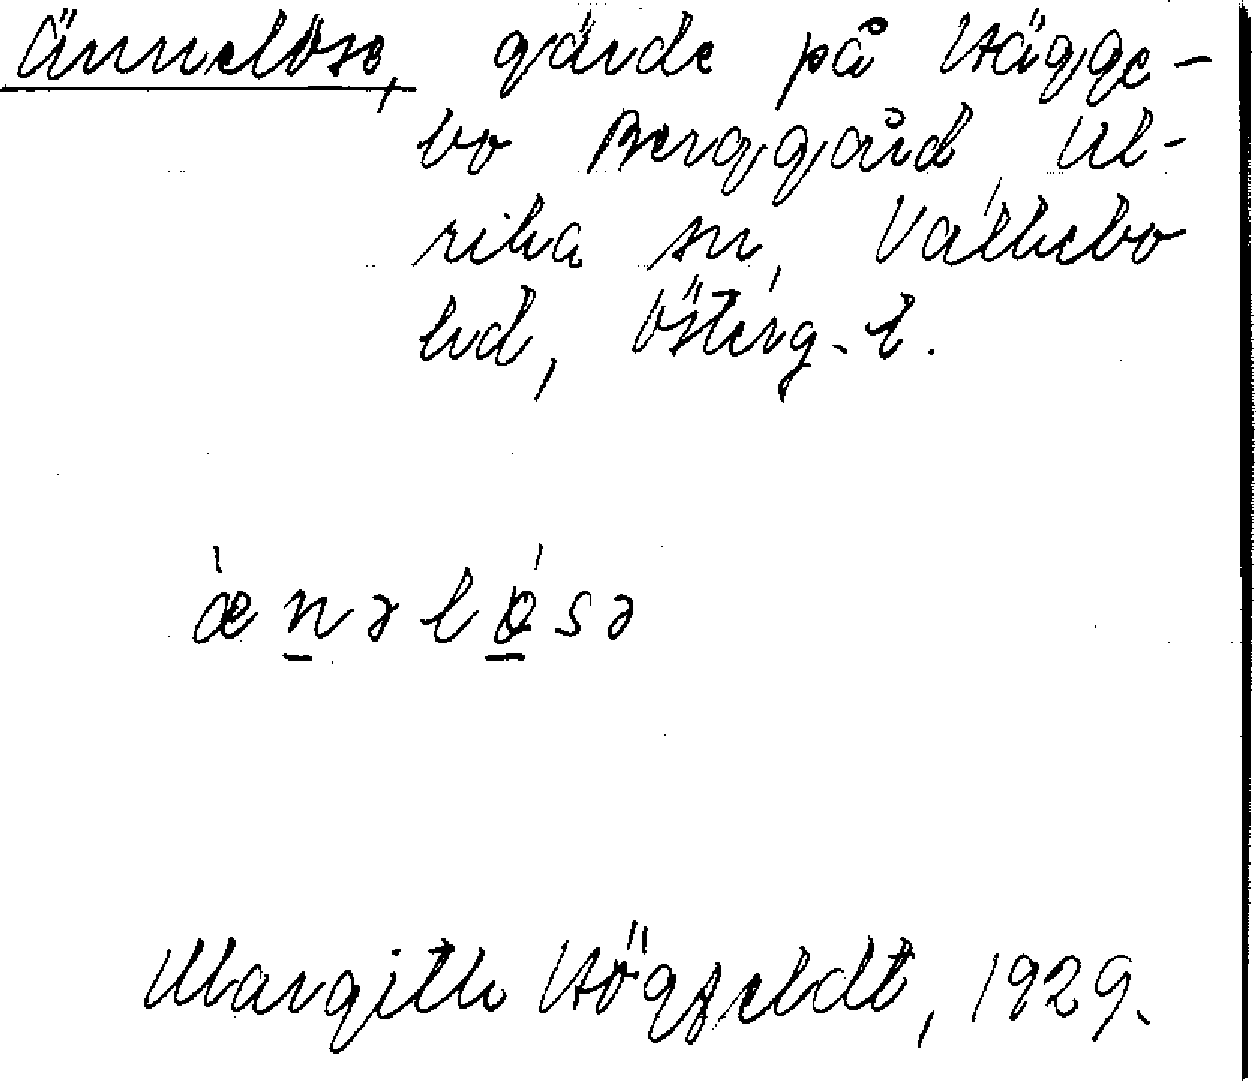 Ännelöse, gärde på Hägge-
bo Berggård, Ul-
rika sn, Valkebo
hd, Österg. l.
æ̀nəlö́sə
Margith Högfeldt, 1929.